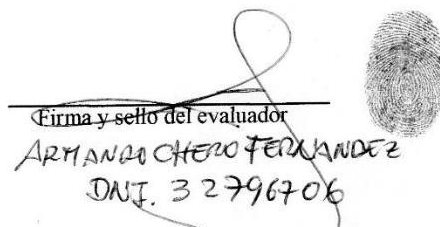 Firma y sello del evaluador
ARMANDO CHERO FERNANDEZ
DNI. 32796706